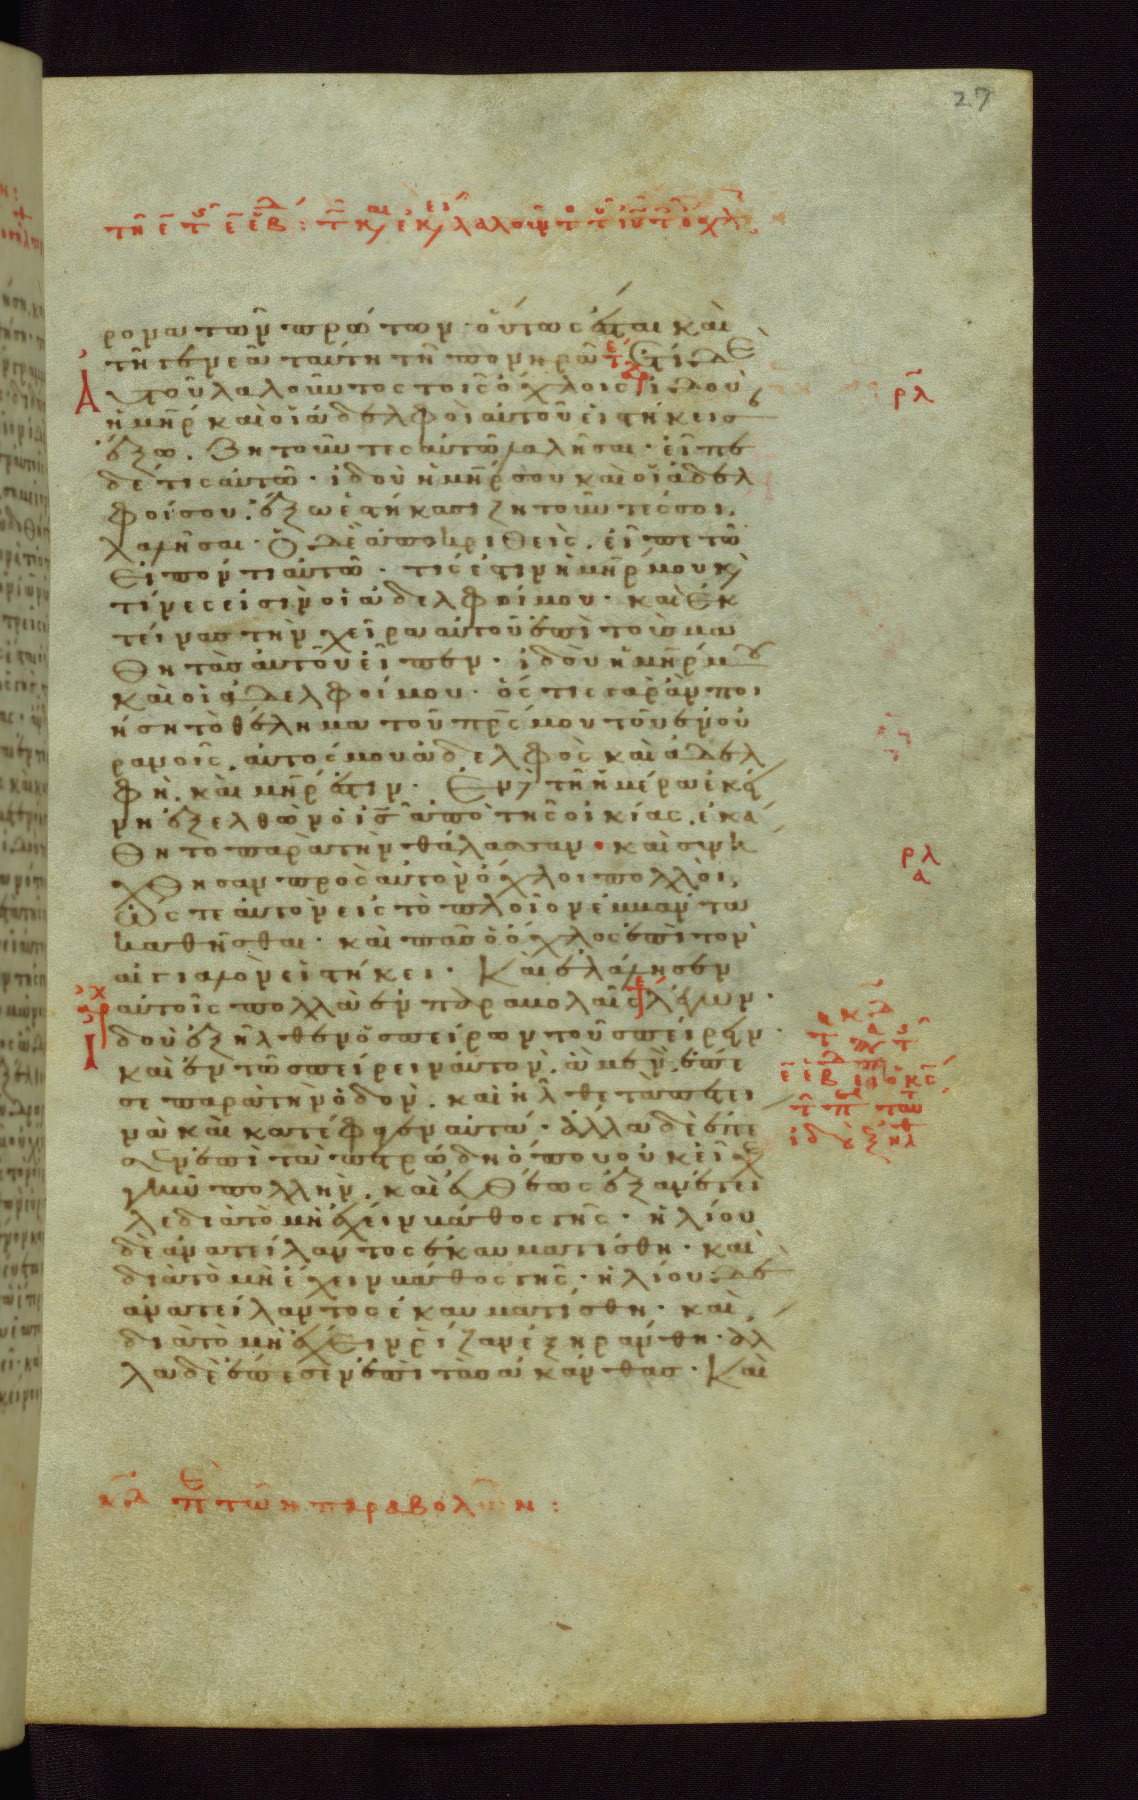 27
τῆ ε τ ς ε ἑβ : τ κ, ἐκ, λαλοῦντο τ ἰυ τ ὄχλ
ρονα τῶν πρώτων· οὕτως ἔσται καὶ
τῆ γενεᾶ ταύτη τῆ πονηρᾶ τε Ἔτι δὲ
Α υτοῦ λαλοῦντος τοῖς ὄχλοις ἰδοὺ
ρλ
ἡ μηρ καὶ οἱ ἀδελφοὶ αὐτοῦ εἱστήκεισ
ἔξω. ζητοῦντες αὐτῶ λαλῆσαι· εἶπε
δέ τις αὐτῶ· ἰδοὺ ἡ μηρ σου καὶ οἱ ἀδελ
φοί σου. ἔξω ἑστήκασι ζητοῦντές σοι,
λαλῆσαι· Ὁ δὲ ἀποκριθεὶς, εἶπε τῶ
εἰπόντι αὐτῶ· τίς ἐστιν ἡ μηρ μου κ,
τίνες εἰσὶν οἱ ἀδελφοί μου· καὶ ἐκ
τείνας τὴν χεῖρα αὐτοῦ ἐπὶ τοὺς μα
θητὰς αὐτοῦ εἶπεν· ἰδοὺ ἡ μηρ μου
καὶ οἱ ἀδελφοί μου· ὅς τις γὰρ ἂν ποι
ήση τὸ θέλημα τοῦ πρς μου τοῦ ἐν οὐ
ρανοῖς, αὐτός μου ἀδελφὸς καὶ ἀδελ
φὴ, καὶ μηρ ἐστιν· Ἐν, τῆ ἡμέρα ἐκεί
νη ἐξελθὼν ὁ ις ἀπὸ τῆς οἰκίας, ἐκά
θητο παρὰ τὴν θάλασσαν· καὶ συνή
ρλα
χθησαν πρὸς αὐτὸν ὄχλοι πολλοὶ,
ὥς τε αὐτὸν εἰς τὸ πλοῖον ἐμβάντα
καθῆσθαι· καὶ πᾶς ὁ ὄχλος ἐπὶ τὸν
αἰγιαλὸν εἱστήκει· Καὶ ἐλάλησεν
αὐτοῖς πολλὰ ἐν παραβολαῖς λέγων·
Ι δοὺ ἐξῆλθεν ὁ σπείρων τοῦ σπείρειν·
καὶ ἐν τῶ σπείρειν αὐτὸν, ἃ μὲν ἔπε
ἑβ ὁ κς
σε παρὰ τὴν ὁδὸν, καὶ ἦλθε τὰ πετει
νὰ καὶ κατέφαγεν αὐτά· ἄλλα δὲ ἔπε
ἰδοὺ ἐξῆλθ
σεν ἐπὶ τὰ πετρώδη ὅπου οὐκ εἶχε
γῆν πολλὴν, καὶ εὐθέως ἐξανέτει
λε διὰ τὸ μὴ ἔχειν βάθος γῆς· ἡλίου
δὲ ἀνατείλαντος ἐκαυματίσθη· καὶ
διὰ τὸ μὴ ἔχειν βάθος γῆς· ἡλίου δὲ
ἀνατείλαντος ἐκαυματίσθη· καὶ
διὰ τὸ μὴ ἔχειν ῥίζαν ἐξηράνθη· ἄλ
λα δὲ ἔπεσεν ἐπὶ τὰς ἀκάνθας· Καὶ
π τῶν παραβολῶν :